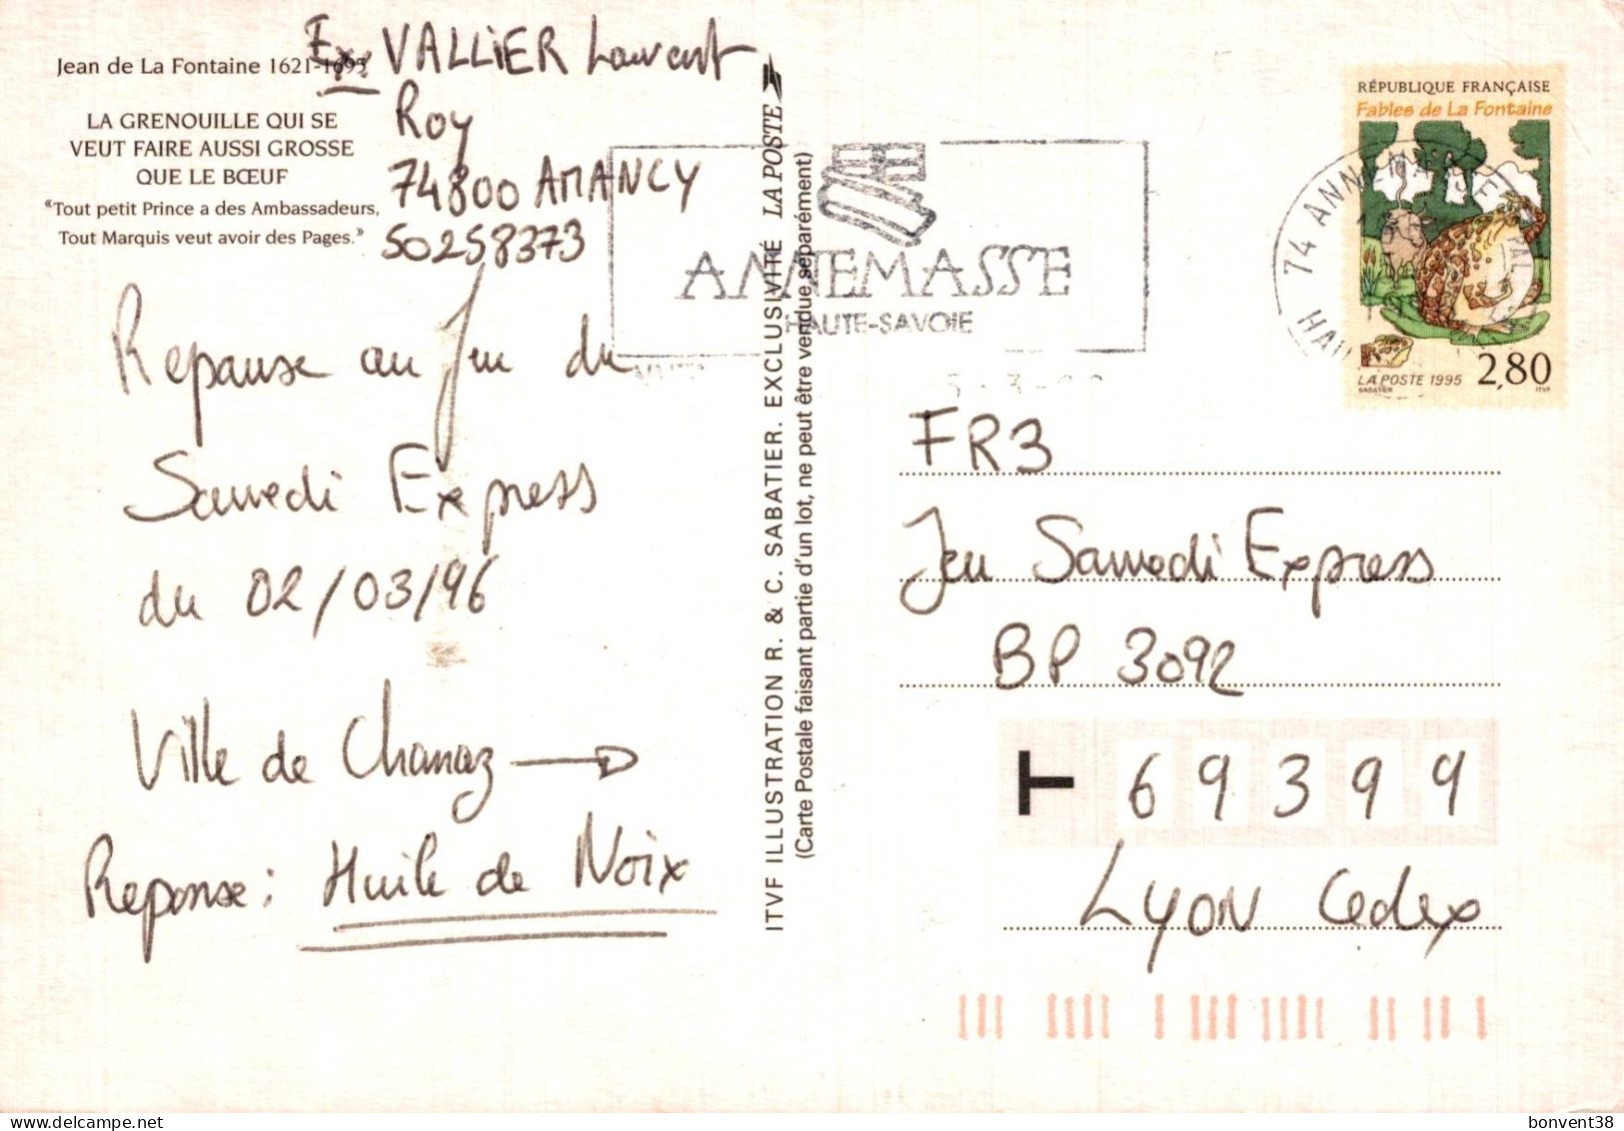 Jean de La Fontaine 1621-1695
LA GRENOUILLE QUI SE
VEUT FAIRE AUSSI GROSSE
QUE LE BŒUF
“Tout petit Prince a des Ambassadeurs,
Tout Marquis veut avoir des Pages.”
Ex VALLIER Laurent
Roy
74800 AMANCY
50258373
Reponse au Jeu du
Samedi Express
du 02/03/96
Ville de Chanaz →
Reponse : Huile de Noix
ITVF ILLUSTRATION R. & C. SABATIER. EXCLUSIVITÉ LA POSTE
(Carte Postale faisant partie d'un lot, ne peut être vendue séparément)
ANNEMASSE
HAUTE-SAVOIE
74 ANNEMASSE PAL
RÉPUBLIQUE FRANÇAISE
Fables de La Fontaine
LA POSTE 1995 2,80
SABATIER ITVF
FR3
Jeu Samedi Express
BP 3092
T 69399
Lyon Cedex
bonvent38